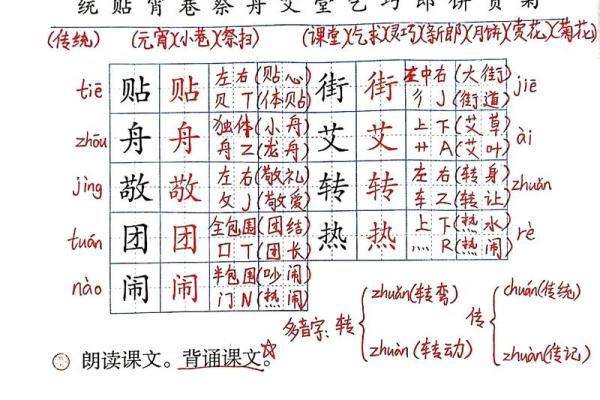 统 贴 宵 巷 祭 舟 艾 堂 乞 巧 郎 饼 赏 菊
(传统) (元宵)(小巷)(祭扫) (课堂)(乞求)(灵巧)(新郎)(月饼)(赏花)(菊花)
tiē 贴 贴 左右(贴心) 街 街 左中右(大街) jiē
贝 T(体贴) 彳 J(街道)
zhōu 舟 舟 独体(小舟) 艾 艾 上下(艾草) ài
舟 Z(龙舟) 艹 A(艾叶)
jìng 敬 敬 左右(敬礼) 转 转 左右(转身) zhuǎn
攵 J(敬爱) 车 Z(转让)
tuán 团 团 全包围(团结) 热 热 上下(热水) rè
囗 T(团长) 灬 R(热闹)
nào 闹 闹 半包围(吵闹)
门 N(热闹)
多音字: 转 zhuǎn(转弯) zhuàn(转动) 传 chuán(传统) zhuàn(传记)
朗读课文。背诵课文。